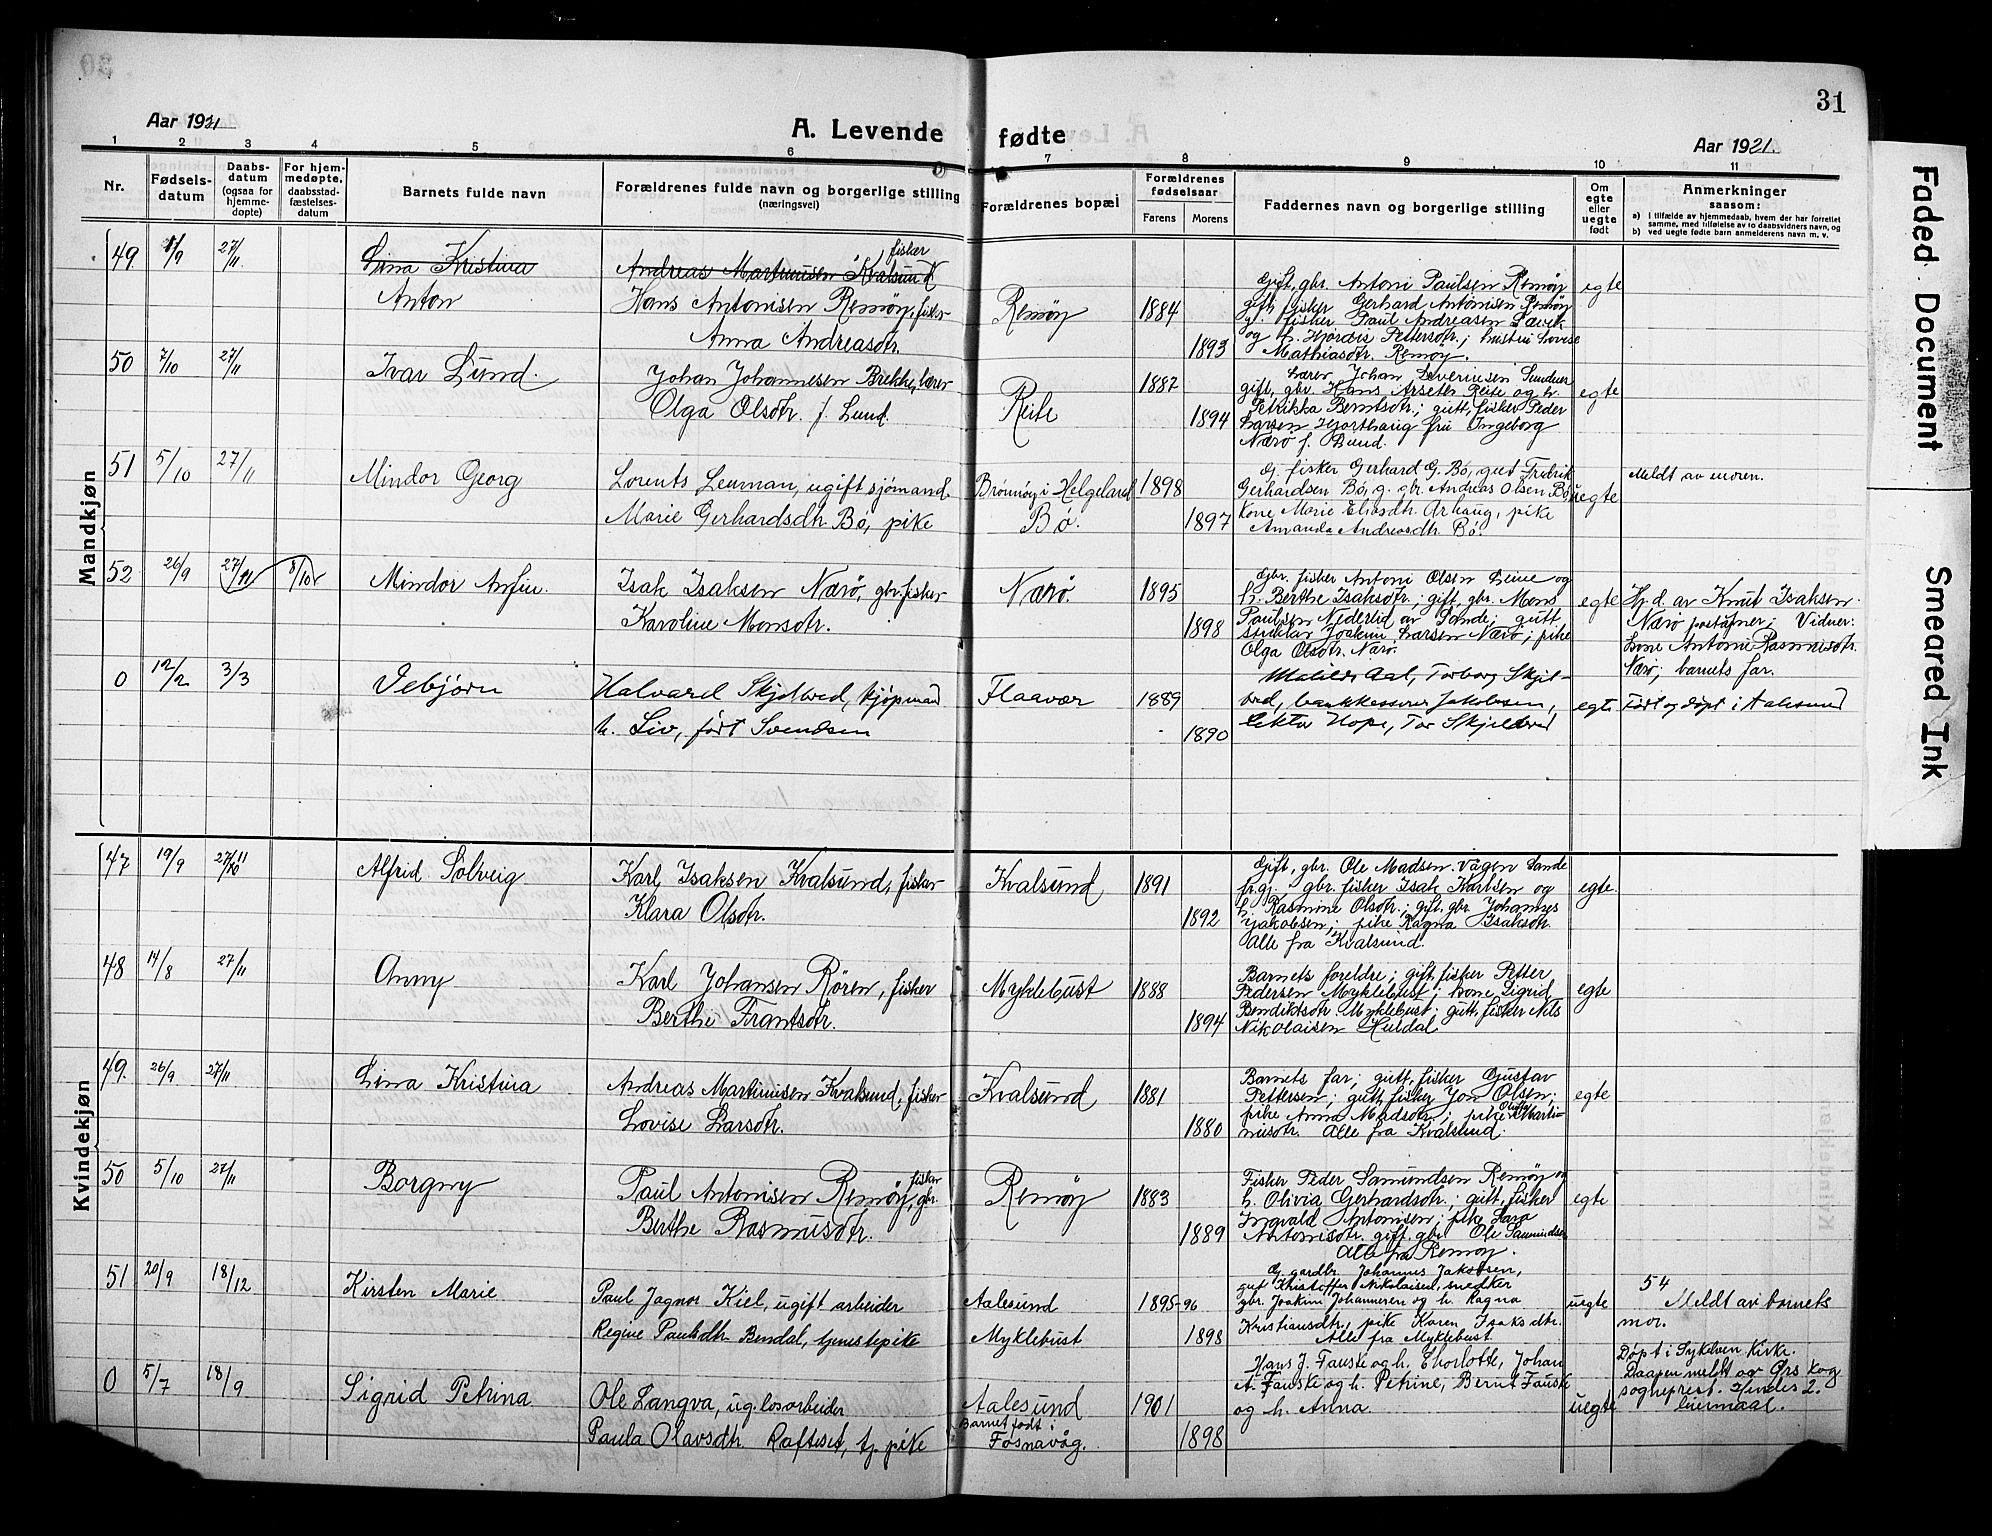 31
Aar 1921
A. Levende fødte
Aar 1921.
1 2 3 4 5 6 7 8 9 10 11
Nr.
Fødsels-
datum
Daabs-
datum
(ogsaa for
hjemme-
døpte)
For hjem-
medøpte,
daabsstad-
fæstelses-
datum
Barnets fulde navn
Forældrenes fulde navn og borgerlige stilling
(næringsvei)
Forældrenes bopæl
Forældrenes
fødselsaar
Farens Morens
Faddernes navn og borgerlige stilling
Om
egte
eller
uegte
født
Anmerkninger
saasom:
a) i tilfælde av hjemmedaab, hvem der har forrettet
samme, med tilføielse av to daabsvidners navn, og
b) ved uegte fødte barn anmelderens navn m. v.
Mandkjøn
49. 1/9 27/11.
Lina Kristina
Anton
fisker
Andreas Martinusen Kvalsund
Hans Antonisen Remøy, fisker
Anna Andreasdtr.
Remøy
1884
1893
Gift, gbr. Antoni Paulsen Remøy
gift, fisker Gerhard Antonisen Remøy
g. fisker Paul Andreasen Sævik
og h. Hjørdis Pettersdtr.; hustru Lovise
Mathiasdtr. Remøy.
egte
50 7/10 27/11
Ivar Lund.
Johan Johannesen Brekke, lærer
Olga Olsdtr. f. Lund.
Reite
1887
1894
Lærer Johan Severinsen Sundnes
gift, gbr. Hans Arseter Reite og h.
Petrikka Berntsdtr.; gutt, fisker Peder
Larsen Hjorthaug fru Ingeborg
Nærø f. Lund.
egte
51 5/10 27/11
Mindor Georg
Lorents Leuman, ugift sjømand.
Marie Gerhardsdtr Bø, pike
Brønnøy i Helgeland
Bø.
1898
1897
G. fisker Gerhard G. Bø, gut Fredrik
Gerhardsen Bø, g. gbr. Andreas Olsen Bø
Kone Marie Eliasdtr Arhaug, pike
Amanda Andreasdtr Bø.
uegte
Meldt av moren.
52 26/9 27/11 8/10
Mindor Anfin.
Isak Isaksen Nærø, gbr. fisker
Karoline Monsdtr.
Nærø.
1895
1898
Gbr. fisker Antoni Olsen Leine og
h. Berthe Isaksdtr.; gift, gbr. Mons
Paulsen Nederlid av Sande; gutt
Joakim Larsen Nærø; pike
Olga Olsdtr. Nærø.
egte
Hj. d. av Knut Isaksen
Nærø postaapner; Vidner:
kone Antonie Rasmusdtr.
Nærø; barnets far.
0 12/2 3/3
Isbjørn
Halvard Skjelbred, kjøpmand
h. Liv, født Svendsen
Flaavær
1889
1890
Matilde Aal, Torborg Skjel-
bred, bankkasserer Jakobsen,
lektor Hope, Tor Skjelbred
egte
Født og døpt i Aalesund
Kvindekjøn
47 19/9 27/11
Alfrid Solveig
Karl Isaksen Kvalsund, fisker
Klara Olsdtr.
Kvalsund
1891
1892
Gift, gbr. Ole Madsen Vågen Sande
gbr. fisker Isak Karlsen og
h. Rasmine Olsdtr.; gift, gbr. Johannes
Jakobsen; pike Ragna Isaksdtr.
Alle fra Kvalsund.
egte.
48 14/8 27/11
Onny
Karl Johansen Røren, fisker
Berthe Frantsdtr.
Myklebust
1888
1894
Barnets foreldre; gift, fisker Petter
Pedersen Myklebust; kone Sigrid
Bendiktsdtr Myklebust; gutt, fisker Nils
Nikolaisen Huldal
egte
49. 26/9 27/11
Lina Kristina
Andreas Martinusen Kvalsund, fisker
Lovise Larsdtr.
Kvalsund
1881
1880
Barnets far; gutt, fisker Gustav
Pettersen; gutt, fisker Jon Olsen;
pike Anna Madsdtr.; pike Oluffa Marti-
nusdtr. Alle fra Kvalsund.
egte
50 5/10 27/11
Borgny
Paul Antonisen Remøy, fisker gbr.
Berthe Rasmusdtr.
Remøy
1883
1889
Fisker Peder Samundsen Remøy og
h. Olivia Gerhardsdtr.; gutt, fisker
Ingvald Antonisen; pike Lara
Antonisdtr. gift, gbr Ole Samundsen
Alle fra Remøy.
egte
51 20/9 18/12
Kirsten Marie
Paul Jagnor Kiel, ugift arbeider
Regine Paulsdtr Bendal, tjenestepike
Aalesund
Myklebust
1895-96
1898
G. gardbr. Johannes Jakobsen,
gut Kristoffer Nikolaisen, snedker
gbr. Joakim Johannesen og h. Ragna
Kristiansdtr, pike Karen Isaksdtr.
Alle fra Myklebust
uegte
54
Meldt av barnets
mor.
0 5/7 18/9
Sigrid Petrina
Ole Langva, ug. losarbeider
Paula Olavsdtr Rafteset, tj. pike
Aalesund
Barnet født i
Fosnavåg.
1901
1898
Hans J. Fauske og h. Thorlotte, Johan
A. Fauske og h. Petrine, Bernt Fauske
og h. Anna.
uegte
Døpt i Sykelven Kirke.
Daapen meldt av Ørskog
sogneprest. Hendes 2.
leiermaal.
Faded Document
Smeared Ink